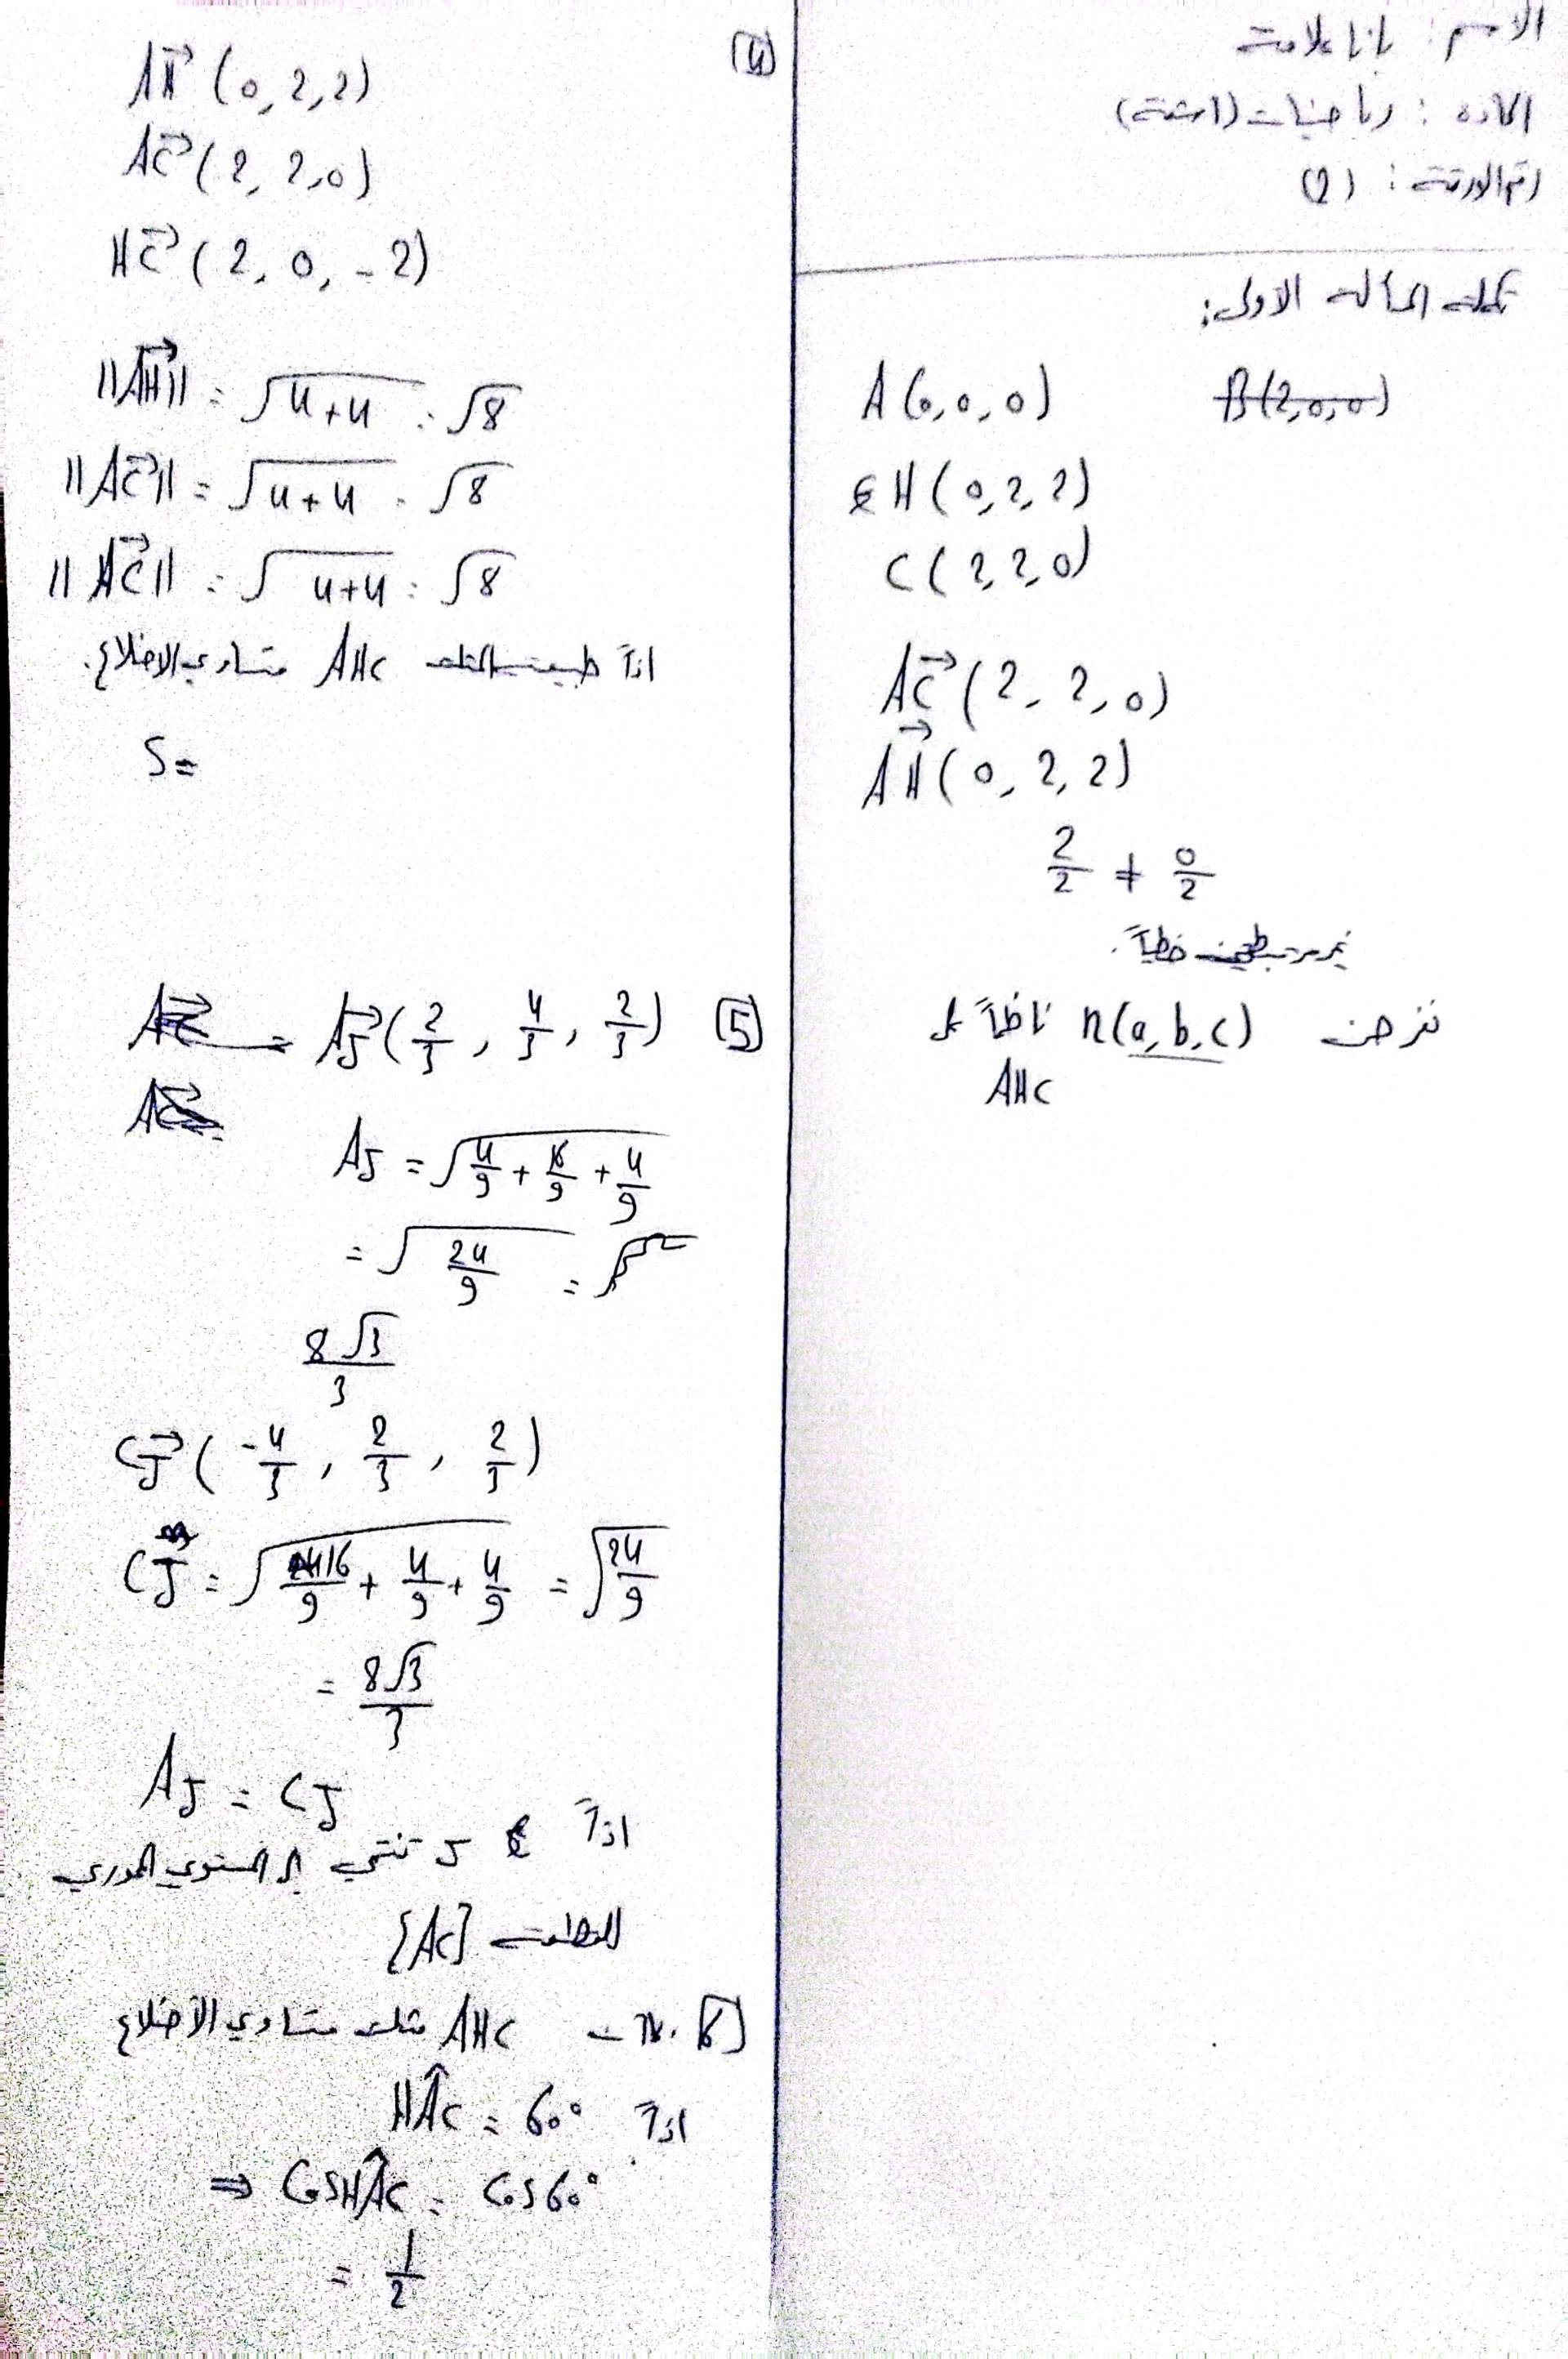 الاسم: بانا علامت
المادة: رياضيات (أتمتة)
رقم الورقة: (2)
تكملة المسألة الأولى:
A(0,0,0) B(2,0,0)
H(0,2,2)
C(2,2,0)
AC→(2,2,0)
AH→(0,2,2)
2/2 ≠ 0/2
غير مرتبطين خطياً.
نفرض n(a,b,c) ناظماً لـ
AHC
[4]
AH→(0,2,2)
AC→(2,2,0)
HC→(2,0,-2)
||AH→|| = √4+4 = √8
||AC→|| = √4+4 = √8
||HC→|| = √4+4 = √8
اذاً طبيعة المثلث AHC متساوي الاضلاع.
S=
[5] = AJ→(2/3, 4/3, 2/3)
AJ = √4/9 + 16/9 + 4/9
= √24/9 =
8√3/3
CJ→(-4/3, 2/3, 2/3)
CJ = √16/9 + 4/9 + 4/9 = √24/9
= 8√3/3
AJ = CJ
اذاً J تنتمي الى المستوي المحوري
للقطعة [AC]
[6] AHC مثلث متساوي الأضلاع
اذاً HÂC = 60°
⇒ CosHÂC = Cos60°
= 1/2